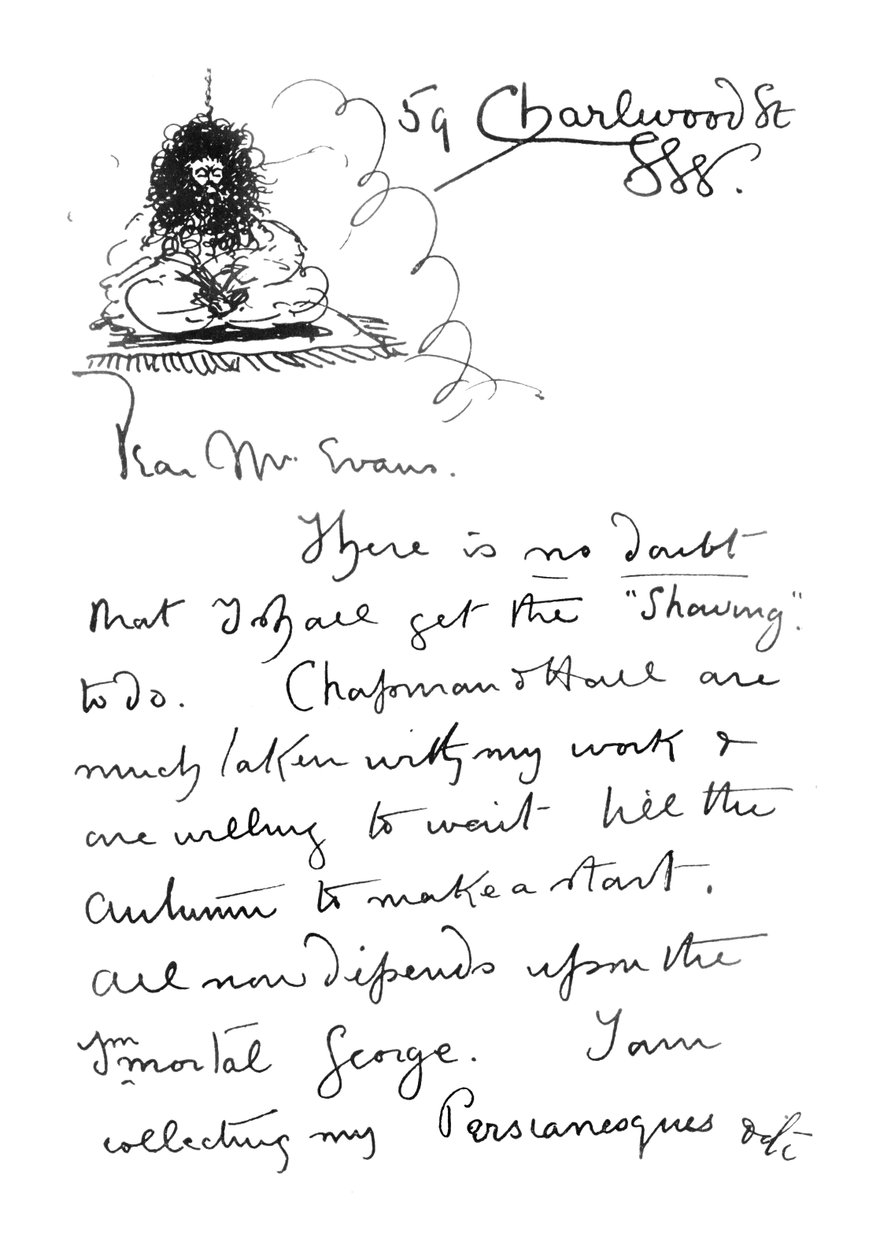 59 Charlwood St
SW.
Dear Mr. Evans.
There is no doubt
that I shall get the "Shaving".
to do. Chapman & Hall are
much taken with my work &
are willing to wait till the
autumn to make a start.
All now depends upon the
Immortal George. I am
collecting my Persianesques &c